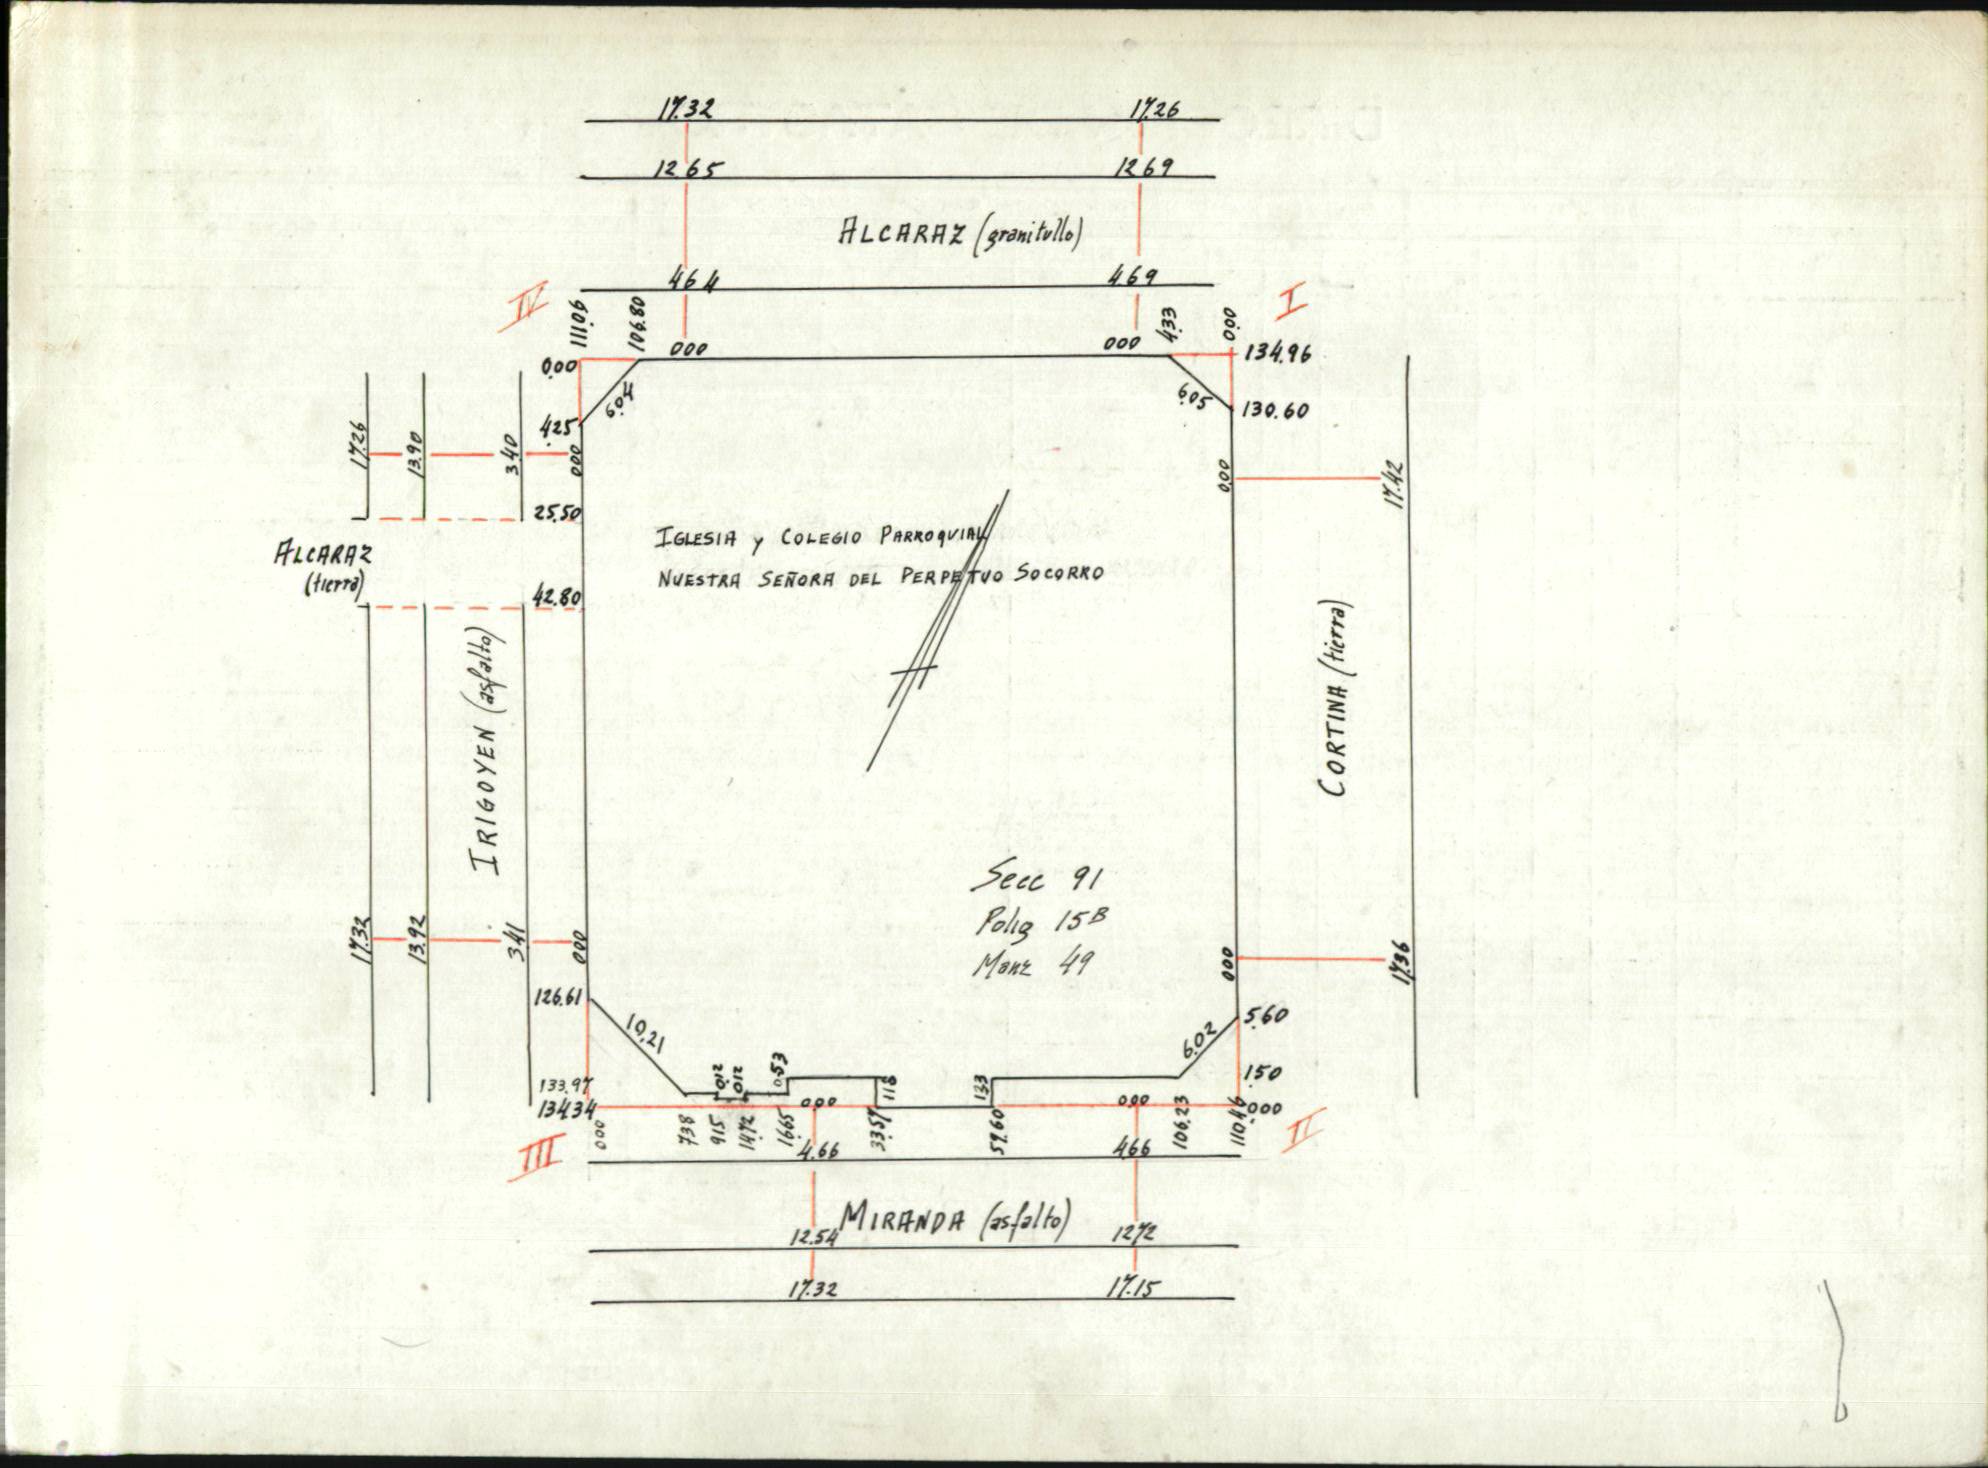 17.32 17.26
12.65 12.69
ALCARAZ (granitullo)
4.64 4.69
IV I
111.06 106.80 000 000 4.33 0.00
0.00 134.96
6.04 6.05
4.25 130.60
17.26 13.90 3.40 000 0.00 17.42
25.50
ALCARAZ
(tierra)
42.80
IGLESIA y COLEGIO PARROQUIAL
NUESTRA SEÑORA DEL PERPETUO SOCORRO
IRIGOYEN (asfalto)
CORTINA (tierra)
Secc 91
Polig 15B
Manz 49
17.32 13.92 3.41 000 000 17.36
126.61 5.60
10,21 6.02
0.12 0.12 0.53 1.16 1.33
133.97 1.50
134.34 0.00 0.00 0.00
000 7.38 9.15 14.72 16.65 33.57 59.60 106,23 110.46
III II
4.66 4.66
MIRANDA (asfalto)
12.54 12.72
17.32 17.15